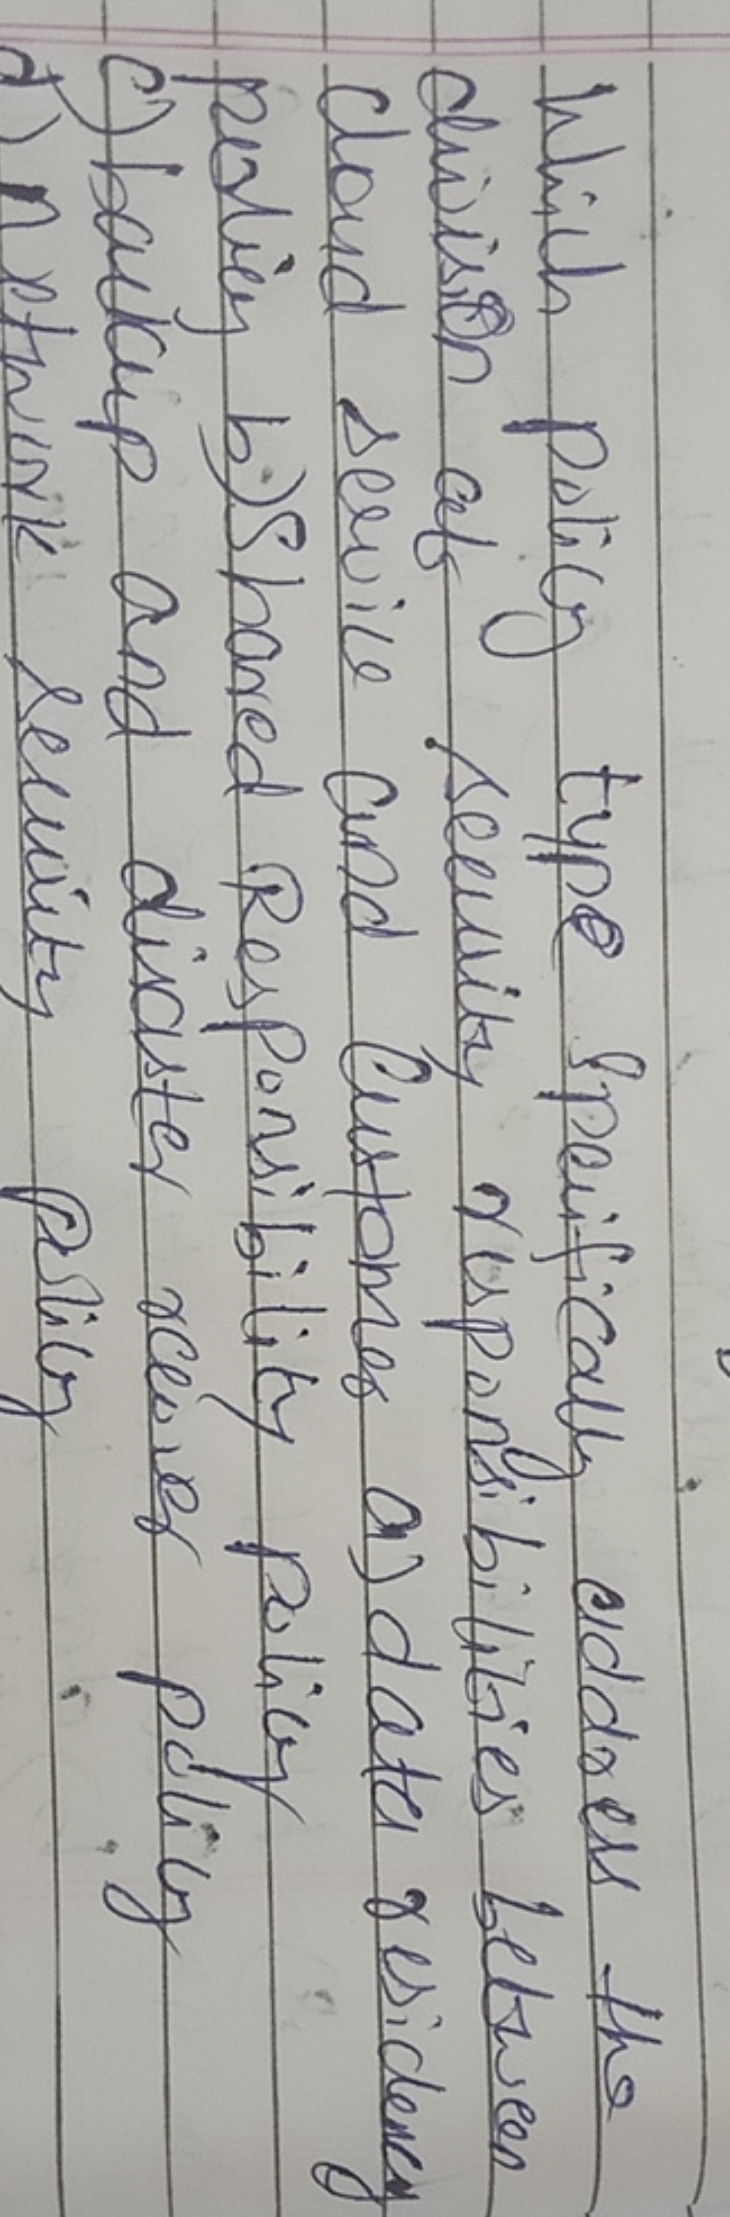 Which policy type specifically address the
division of security responsibilities between
cloud service and Customer a) data residency
policy b) Shared Responsibility policy
c) backup and disaster recover policy
d) network security policy